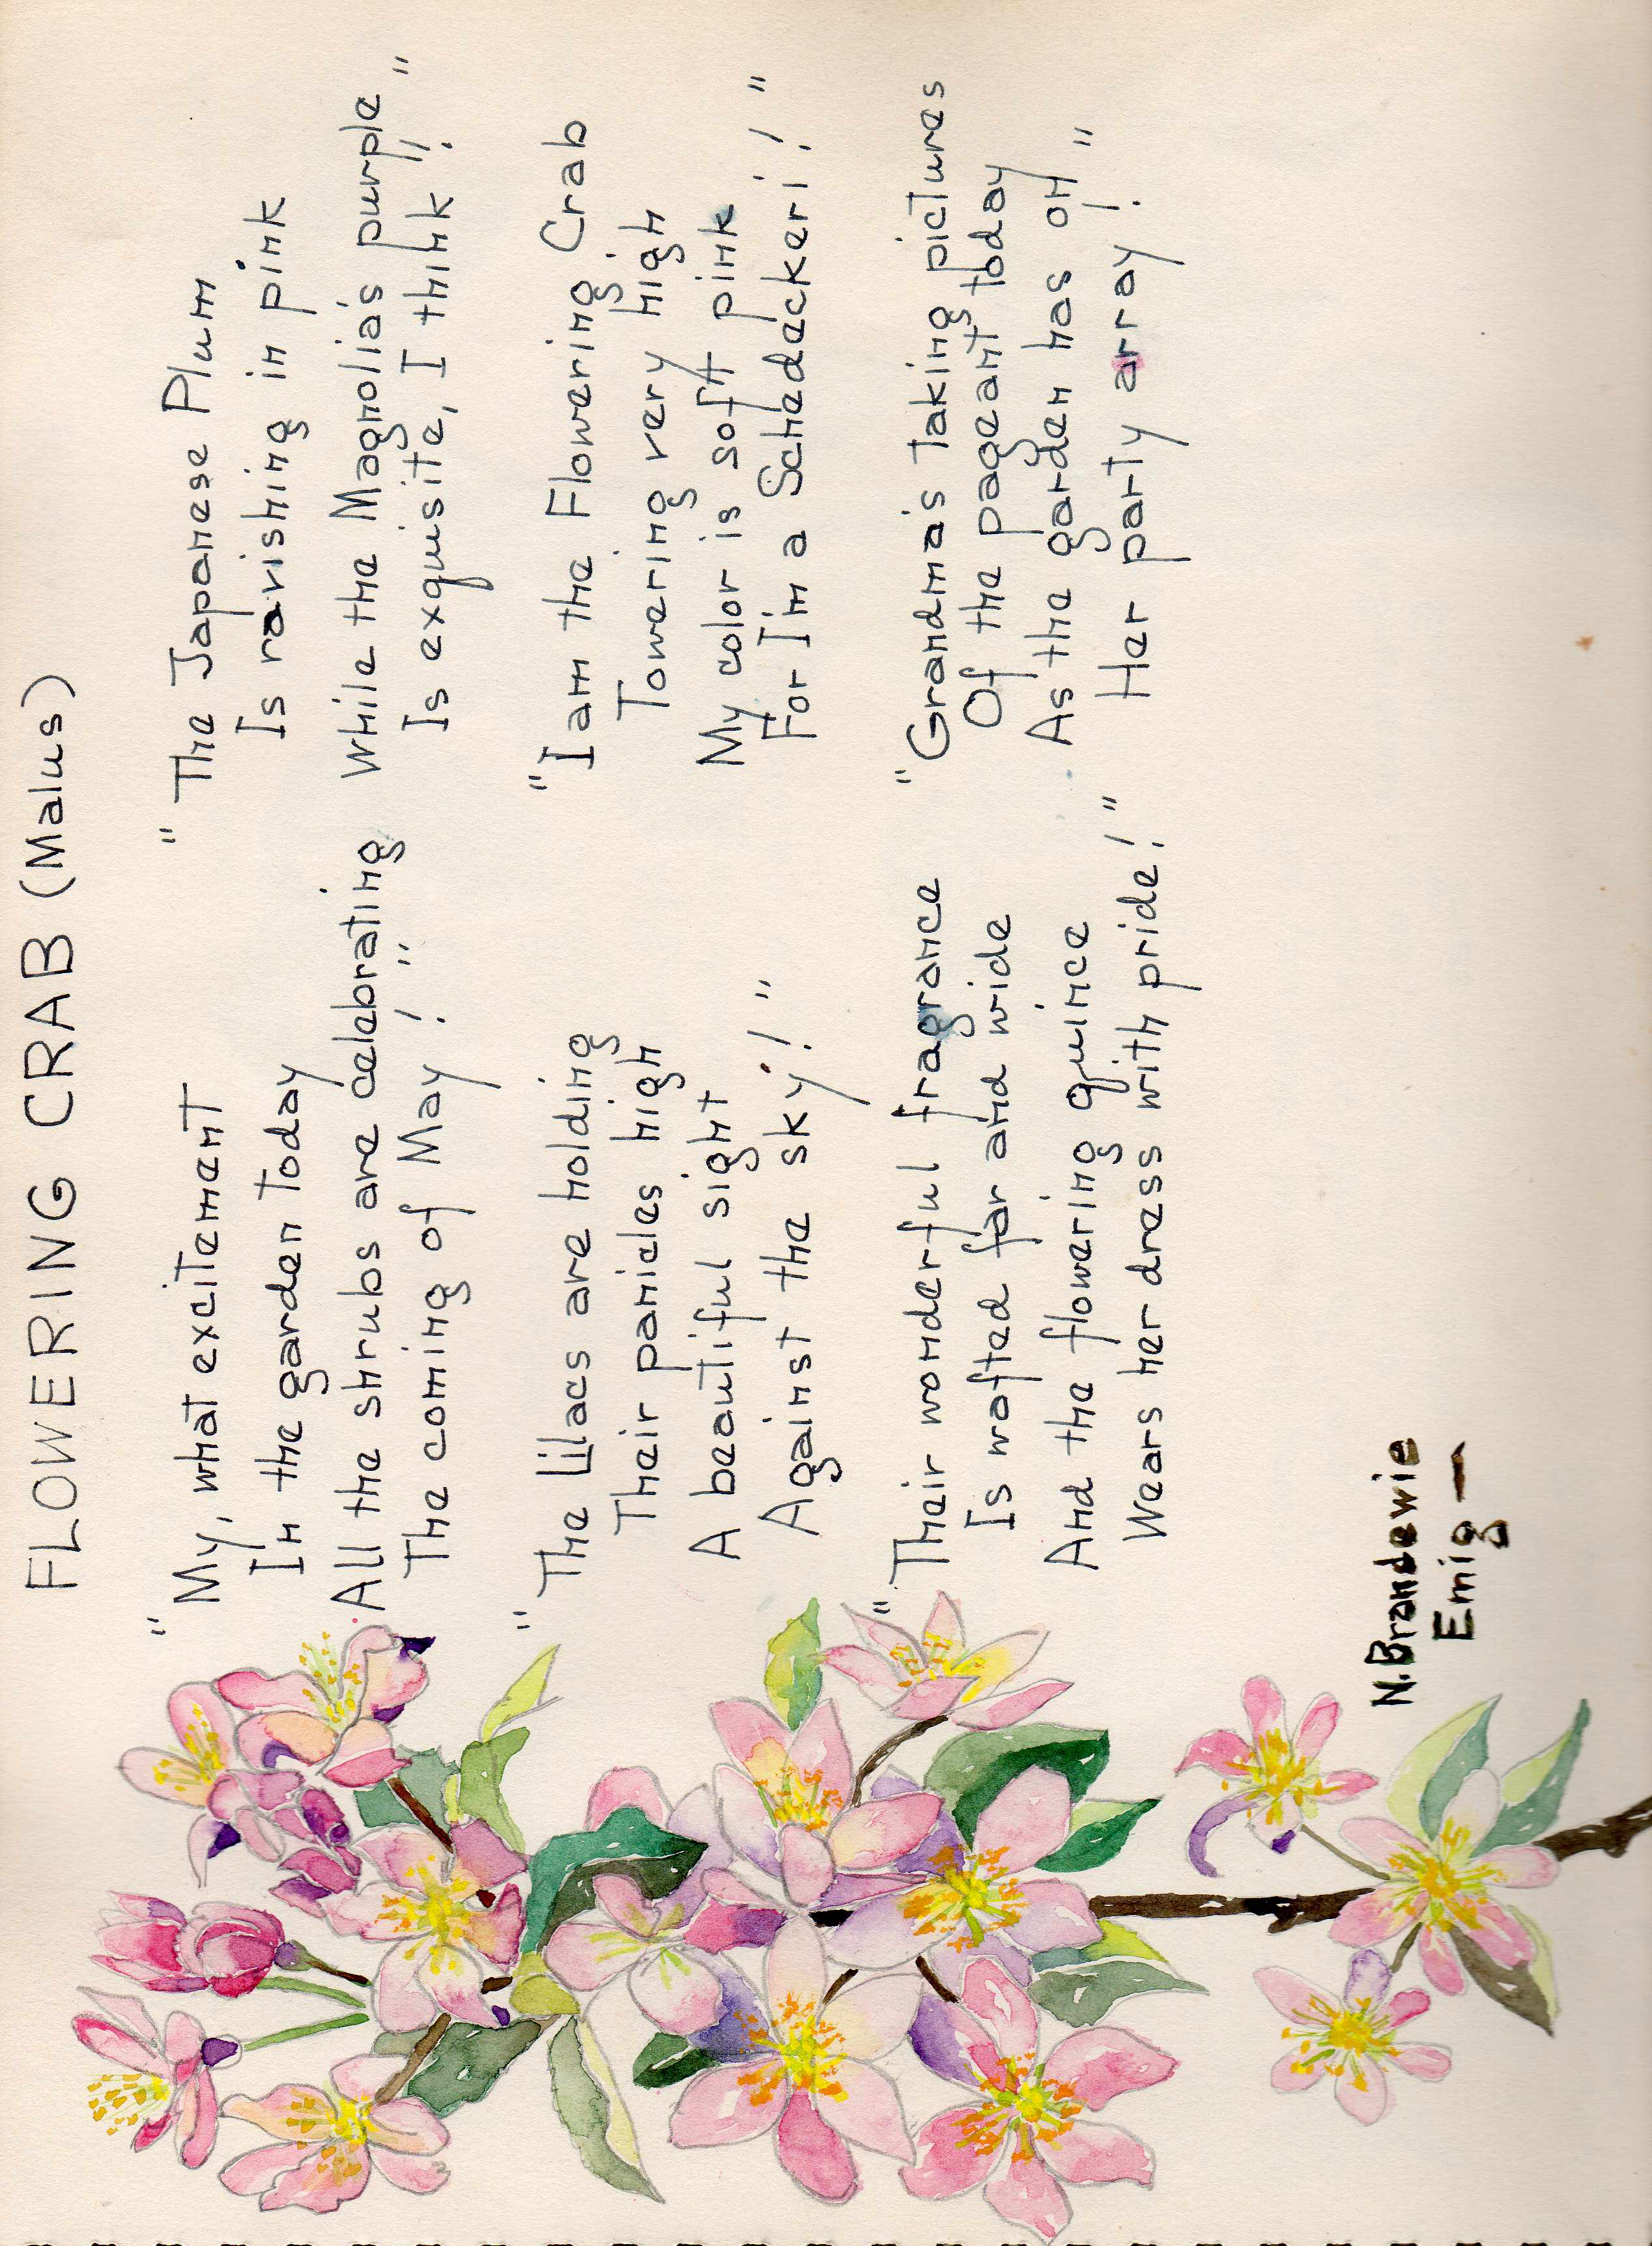 FLOWERING CRAB (Malus)
"My, what excitement
In the garden today
All the shrubs are celebrating
The coming of May!"
"The Lilacs are holding
Their panicles high
A beautiful sight
Against the sky!"
"Their wonderful fragrance
Is wafted far and wide
And the flowering quince
Wears her dress with pride!"
"The Japanese Plum
Is ravishing in pink
While the Magnolia's purple
Is exquisite, I think!"
"I am the Flowering Crab
Towering very high
My color is soft pink
For I'm a Schedeckeri!"
"Grandma's taking pictures
Of the pageant today
As the garden has on
Her party array!"
N. Brandewie
Emig —